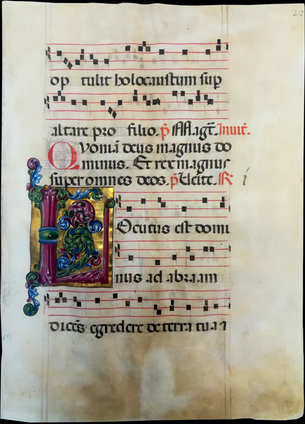 op tulit holocaustum sup
altare pro filio. p̄ Mag̃t. Inuit.
Quoniã deus magnus do
minus. Et rex magnus
super omnes deos. p̄ Uẽite. R
LOcutus est domi
nus ad abraam
dicẽs egredere de terra tua